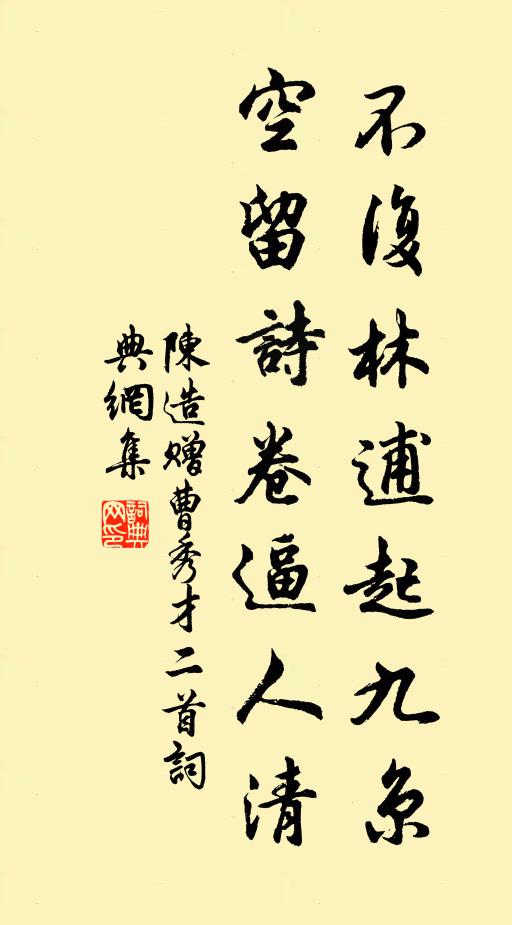 不復林逋起九京
空留詩卷逼人清
陳造贈曹秀才二首詞
典網集
詞典網印